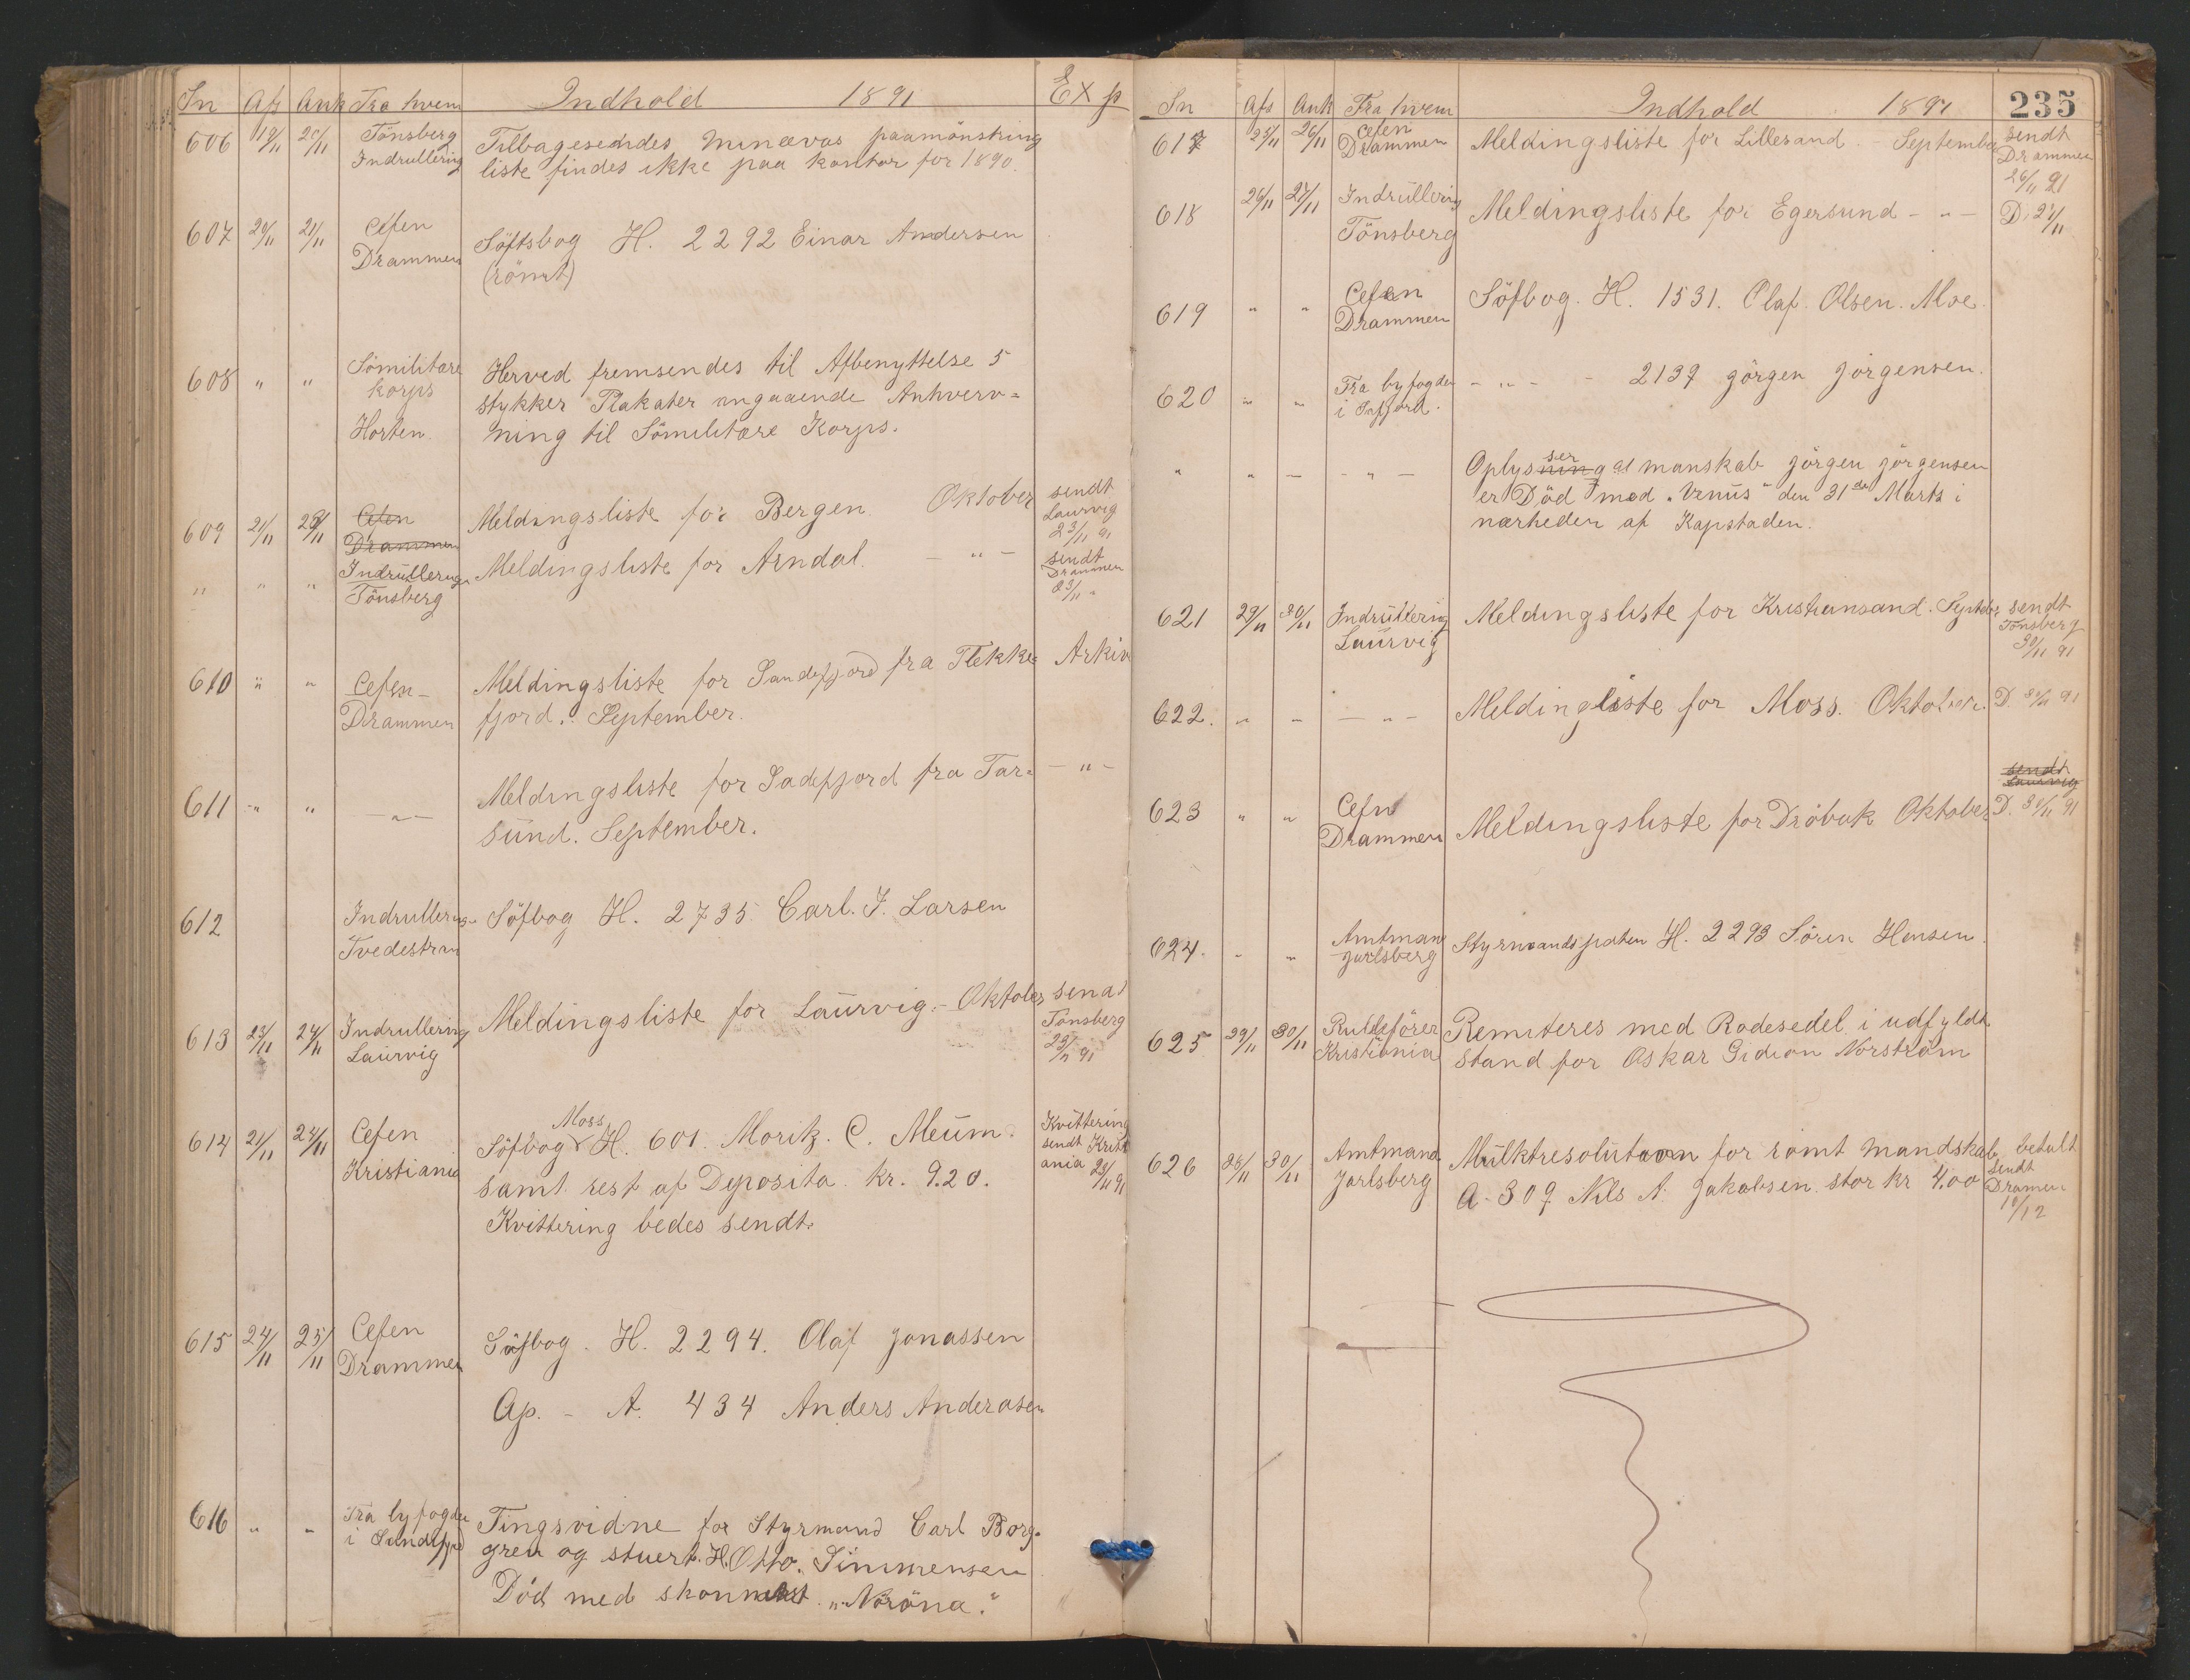 Jn Afs Ank Fra hvem Indhold 1891 Exp
606 19/11 20/11 Tönsberg Tilbagesendes Minervas paamönstring
Indrullering liste findes ikke paa kontor for 1890.
607 20/11 21/11 Cefen Söftsbog H. 2292 Einar Andersen
Drammen (römt)
608 " " Sömilitære Herved fremsendes til Afbenyttelse 5
korps stykker Plakater angaaende Anhverv=
Horten. ning til Sömilitære Korps.
609 21/11 Cefen Meldingsliste for Bergen. Oktober sendt
Drammen Laurvig
23/11 91
" " " Indrullering Meldingsliste for Arndal. - " - sendt
Tönsberg Drammen
23/11 "
610 " " Cefen- Meldingsliste for Sandefjord fra Flekke= Arkiv
Drammen fjord. September.
611 " " - " - Meldingsliste for Sadefjord fra Far= - " -
sund. September.
612 Indrullering- Söfbog H. 2735. Carl. J. Larsen
Tvedestran
613 23/11 24/11 Indrullering Meldingsliste for Laurvig.- Oktober sendt
Laurvig Tönsberg
91
614 21/11 24/11 Cefen Söfbog Moss H. 601. Moritz. C. Meum. Kvittering
Kristiania samt rest af Deposita. kr. 9.20. sendt Kristi
ania 91
Kvittering bedes sendt.
615 24/11 25/11 Cefen Söfbog. H. 2294. Olaf Jonassen
Drammen
Ap. - A. 434 Anders Anderasen
616 " " Fra byfogden Tingsvidne for Styrmand Carl Borg=
i Sandefjord gren og stuert. H. Otto. Simmensen
Död med skonnert "Noröna."
Jn Afs Ank Fra hvem Indhold 1891 235
617 25/11 26/11 Cefen Meldingsliste for Lillesand. - September sendt
Drammen Drammen
26/11 91
618 26/11 27/11 Indrullering Meldingsliste for Egersund - " - D. 27/11
Tönsberg
619 " " Cefen Söfbog. H. 1531. Olaf. Olsen. Moe.
Drammen
620 " " Fra byfogden - " - - 2137 Jörgen Jörgensen.
i
" " - - " - Oplysning ser at manskab Jörgen Jörgensen
er Död med "Venus" den 31de Marts i
nærheden af Kapstaden.
621 29/11 30/11 Indrullering Meldingsliste for Kristiansand. Septebr sendt
Laurvig Tönsberg
30/11 91
622. " " - " - Meldingliste for Moss. Oktober. D. 30/11 91
sendt
Laurvig
623 " " Cefn Meldingsliste for Dröbak Oktober D. 30/11 91
Drammen
624. " " Amtmand Styrmandspaten H. 2293 Sören Hansen.
Jarlsberg
625 29/11 30/11 Rulleförer Remiteres med Rodesedel i udfyldt
Kristiania stand for Oskar Gidion Norström
626 28/11 30/11 Amtmand Mulktresolution for römt mandskab betalt
Jarlsberg A. 309 Nils A. Jakobsen. stor kr 4.00 sendt
Dramen
10/12